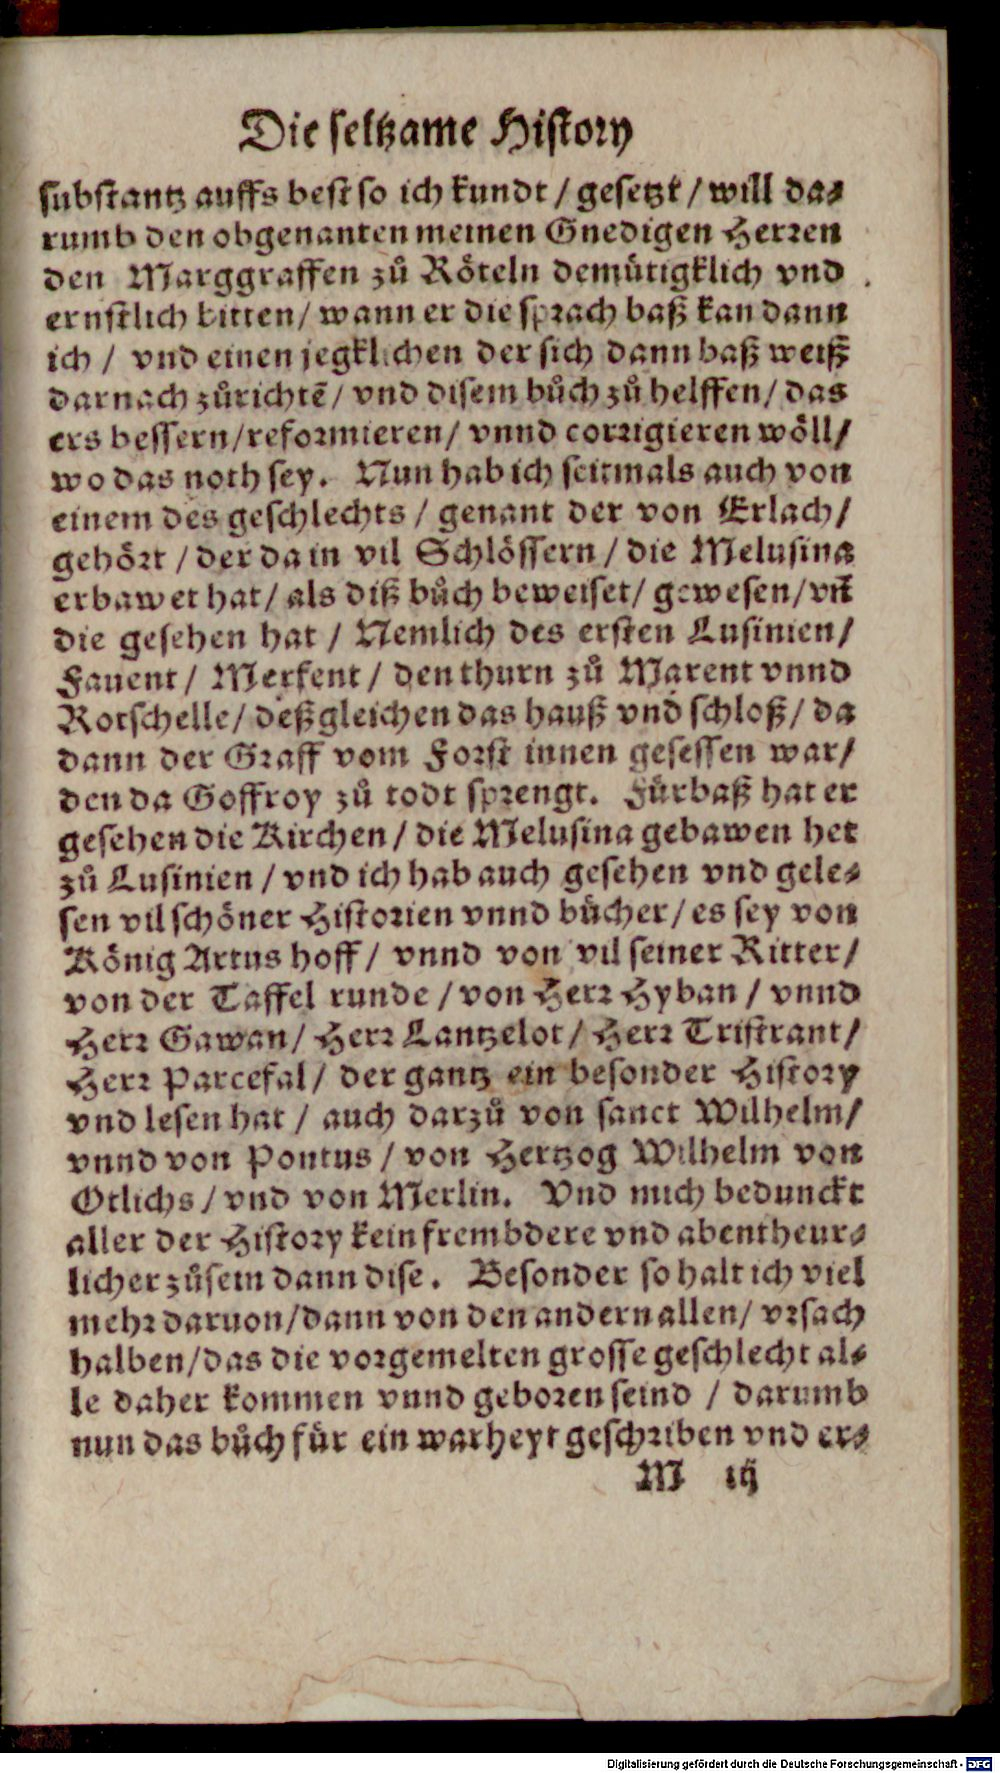 Die seltzame History
substantz auffs best so ich kundt / gesetzt / will da⸗
rumb den obgenanten meinen Gnedigen Herren
den Marggraffen zů Röteln demütigklich vnd
ernstlich bitten / wann er die sprach baß kan dann
ich / vnd einen jegklichen der sich dann baß weiß
darnach zůrichtē / vnd disem bůch zů helffen / das
ers bessern / reformieren / vnnd corrigieren wöll /
wo das noth sey. Nun hab ich seitmals auch von
einem des geschlechts / genant der von Erlach /
gehört / der da in vil Schlössern / die Melusina
erbawet hat / als diß bůch beweiset / gewesen / vn̄
die gesehen hat / Nemlich des ersten Lusinien /
Fauent / Merkent / den thurn zů Marent vnnd
Rotschelle / deßgleichen das hauß vnd schloß / da
dann der Graff vom Forst innen gesessen war /
den da Goffroy zů todt sprengt. Fürbaß hat er
gesehen die Kirchen / die Melusina gebawen het
zů Lusinien / vnd ich hab auch gesehen vnd gele⸗
sen vil schöner Historien vnnd bücher / es sey von
König Artus hoff / vnnd von vil seiner Ritter /
von der Taffel runde / von Herr Hyban / vnnd
Herr Gawan / Herr Lantzelot / Herr Tristrant /
Herr Parcefal / der gantz ein besonder History
vnd lesen hat / auch darzů von sanct Wilhelm /
vnnd von Pontus / von Hertzog Wilhelm von
Otlichs / vnd von Merlin. Vnd mich bedunckt
aller der History kein frembdere vnd abentheur⸗
licher zůsein dann dise. Besonder so halt ich viel
mehr daruon / dann von den andern allen / vrsach
halben / das die vorgemelten grosse geschlecht al⸗
le daher kommen vnnd geboren seind / darumb
nun das bůch für ein warheyt geschriben vnd er⸗
M iij
Digitalisierung gefördert durch die Deutsche Forschungsgemeinschaft - DFG